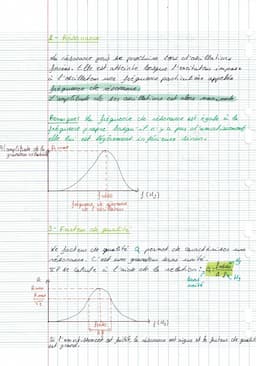 2 - Résonance
La résonance peut se produire lors d'oscillations
forcées. Elle est atteinte lorsque l'excitateur impose
à l'oscillateur une fréquence particulière appelée
fréquence de résonance.
L'amplitude de ses oscillations est alors maximale
Remarque: la fréquence de résonance est égale à la
fréquence propre lorsqu'il n'y a pas d'amortissement
elle lui est légèrement inférieure sinon.
amplitude de la
A max
f (Hz)
fréquence de résonance
de l'oscillateur
3 - Facteur de qualité
Le facteur de qualité Q permet de caractériser une
résonance. C'est une grandeur sans unité.
Il se calcule à l'aide de la relation:
Hz
sans
unité
Δf
Hz
A
A max
A max
√2
f (Hz)
Δf
Si l'amortissement est faible, la résonance est aigue et le facteur de qualité
est grand.